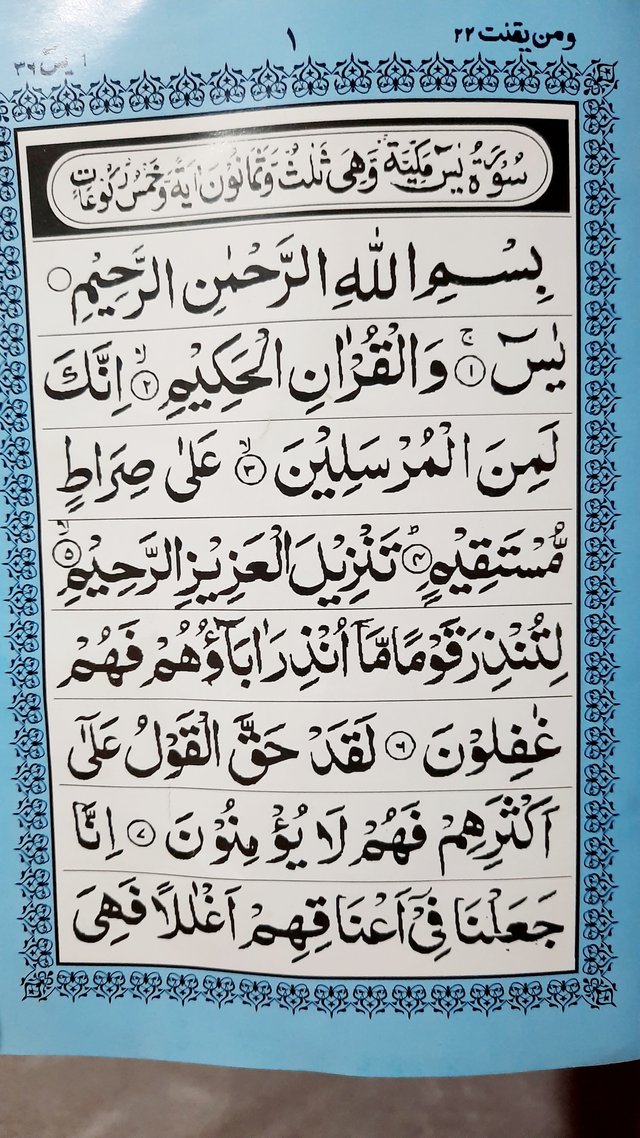 ومن یقنت ۲۲
۱
یٰسٓ ۳۶
سُوْرَةُ يٰسٓ مَكِّيَّةٌ وَّهِىَ ثَلٰثٌ وَّثَمَانُوْنَ اٰيَةً وَّخَمْسُ رُكُوْعَاتٍ
بِسْمِ اللّٰهِ الرَّحْمٰنِ الرَّحِيْمِ ۝
يٰسٓ ۚ﴿۱﴾ وَالْقُرْاٰنِ الْحَكِيْمِ ۙ﴿۲﴾ اِنَّكَ
لَمِنَ الْمُرْسَلِيْنَ ۙ﴿۳﴾ عَلٰى صِرَاطٍ
مُّسْتَقِيْمٍ ؕ﴿۴﴾ تَنْزِيْلَ الْعَزِيْزِ الرَّحِيْمِ ۙ﴿۵﴾
لِتُنْذِرَ قَوْمًا مَّاۤ اُنْذِرَ اٰبَآؤُهُمْ فَهُمْ
غٰفِلُوْنَ ﴿۶﴾ لَقَدْ حَقَّ الْقَوْلُ عَلٰٓى
اَكْثَرِهِمْ فَهُمْ لَا يُؤْمِنُوْنَ ﴿۷﴾ اِنَّا
جَعَلْنَا فِىْۤ اَعْنَاقِهِمْ اَغْلٰلًا فَهِىَ